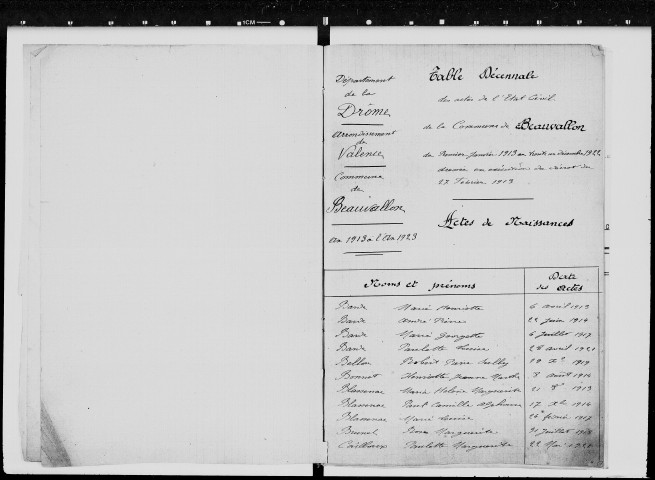 1CM
Département
de la
Drôme
Arrondissement
de
Valence
Commune
de
Beauvallon
An 1913 à l'An 1923
Table Décennale
des actes de l'Etat Civil
de la Commune de Beauvallon
du Premier Janvier 1913 au trente un décembre 1922,
dressée en exécution du décret du
27 Février 1913
Actes de Naissances
Noms et prénoms
Date
des Actes
Bande Marie Henriette 6 avril 1913
Bande André Pierre 22 juin 1914
Bande Marie Georgette 6 juillet 1917
Bande Paulette 28 avril 1921
Bellon Robert 1919
Bonnet Henriette Jeanne Marthe 8 août 1914
Blassenac Marie Hélène Marguerite 21 1913
Blassenac Paul Camille Alphonse 17 Xbre 1914
Blassenac Marie 26 février 1917
Brunel Marguerite 21 juillet
Cailloux Paulette Marguerite 22 Mai